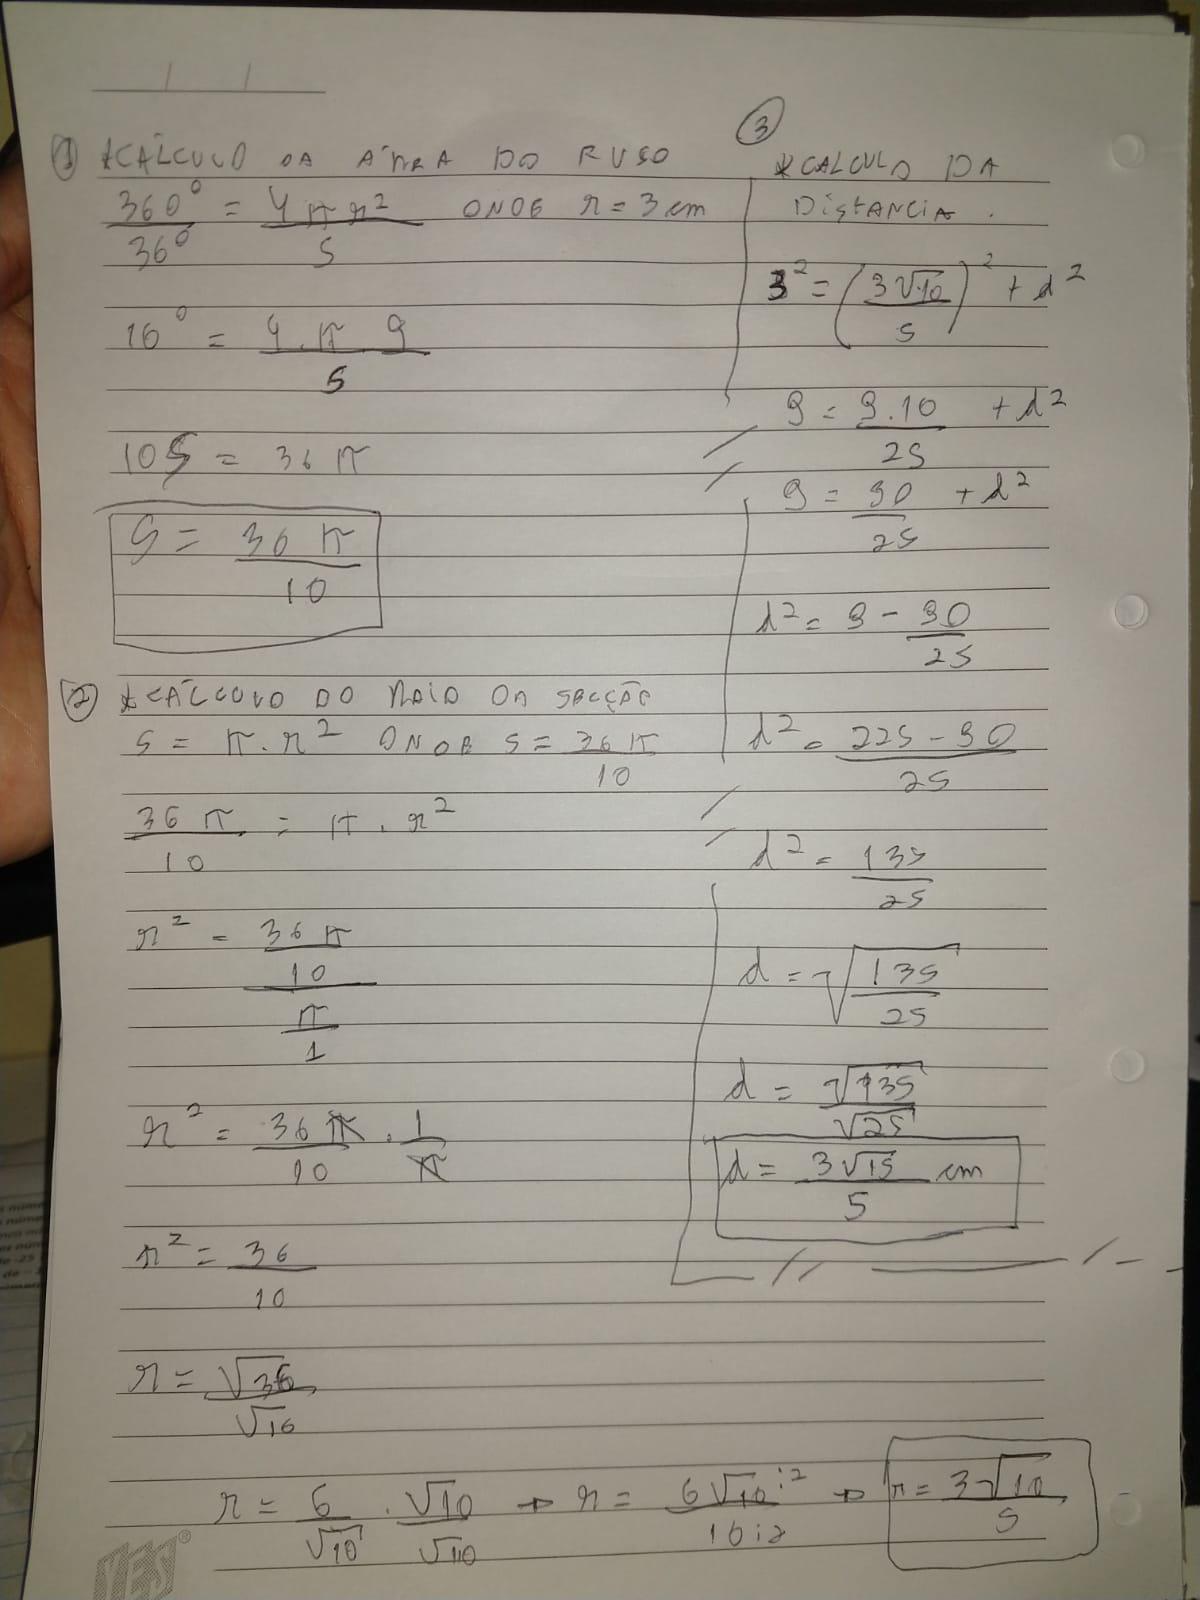 ① *CÁLCULO DA ÁREA DO FUSO
360° / 36° = 4πr² / S ONDE r = 3 cm
10° = 4.π.9 / S
10S = 36π
S = 36π / 10
② *CÁLCULO DO RAIO DA SECÇÃO
S = π.r² ONDE S = 36π / 10
36π / 10 = π.r²
r² = 36π / 10 / π / 1
r² = 36π / 10 . 1 / π
r² = 36 / 10
r = √36 / √10
r = 6 / √10 . √10 / √10 → r = 6√10 :2 / 10 :2 → r = 3√10 / 5
③
*CALCULO DA
DISTANCIA.
3² = (3√10 / 5)² + d²
9 = 9.10 / 25 + d²
9 = 90 / 25 + d²
d² = 9 - 90 / 25
d² = 225 - 90 / 25
d² = 135 / 25
d = √135 / 25
d = √135 / √25
d = 3√15 / 5 cm
YES®